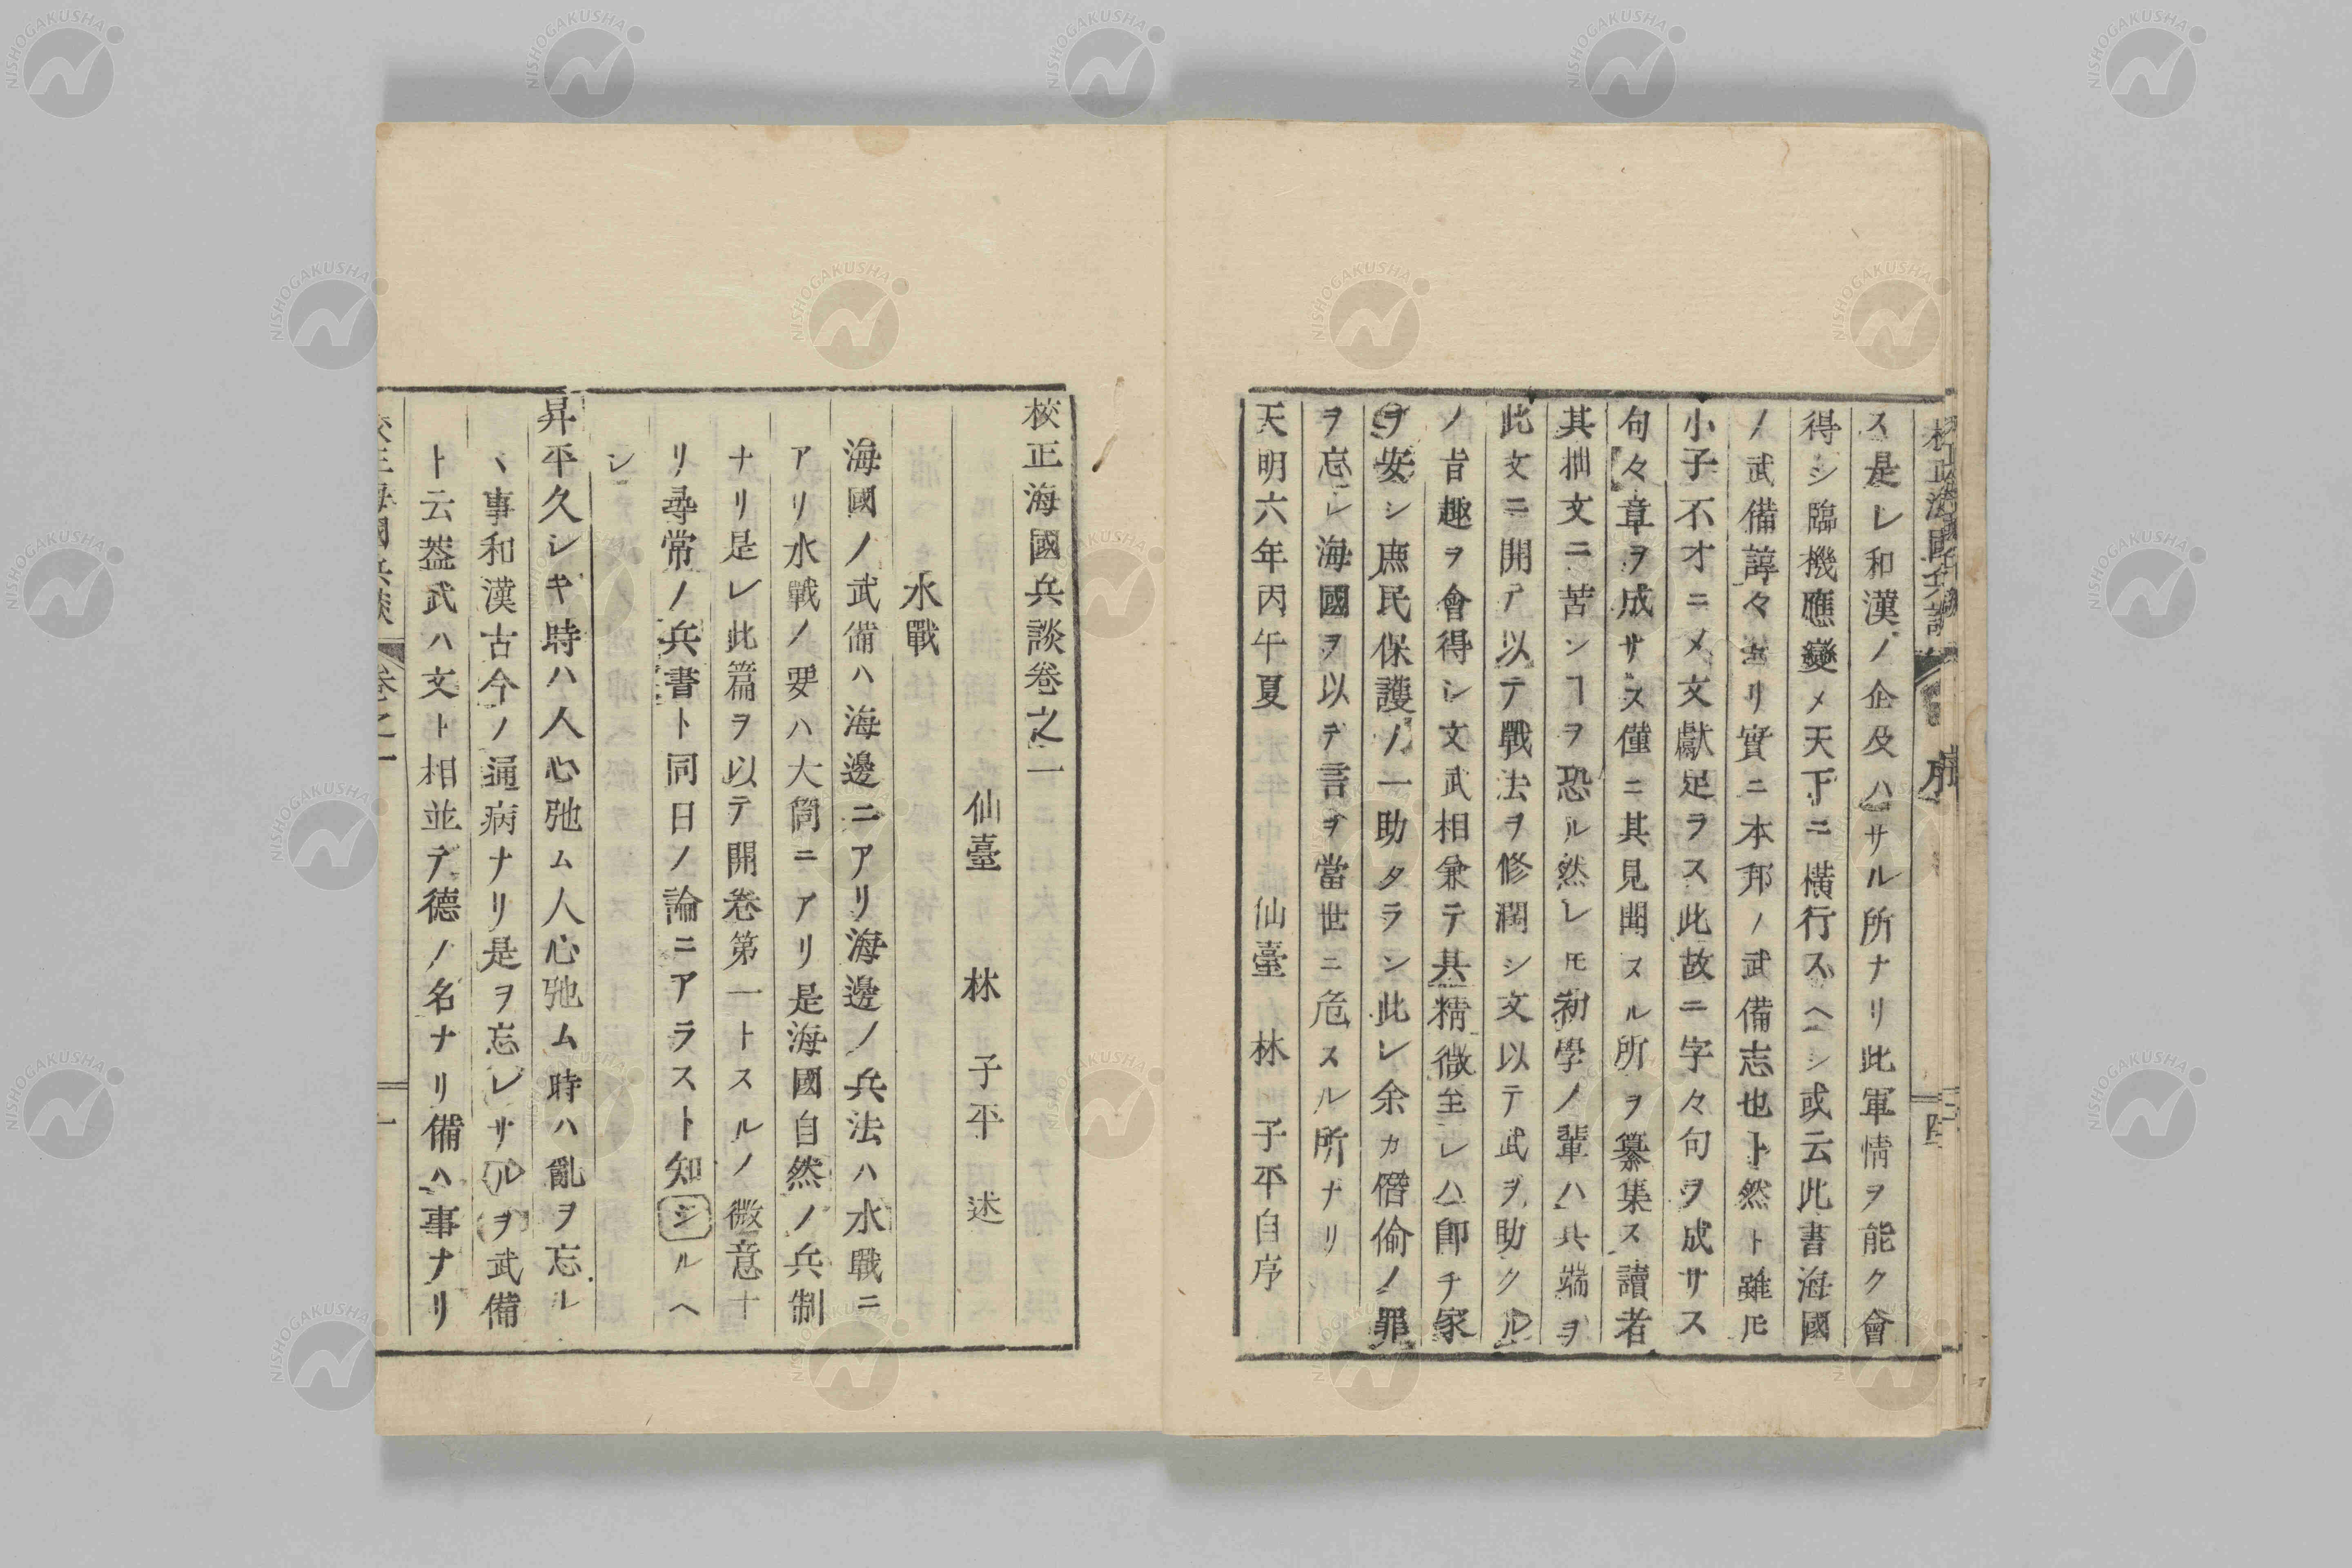 ス是レ和漢ノ企及ハサル所ナリ此軍情ヲ能ク會
得シ臨機應變メ天下ニ橫行スヘシ或云此書海國
ノ武備諄々盡セリ實ニ本邦ノ武備志也ト然ト雖𪜈
小子不才ニメ文獻足ラス此故ニ字々句ヲ成サス
句々章ヲ成サス僅ニ其見聞スル所ヲ纂集ス讀者
其拙文ニ苦ンヿヲ恐ル然レ𪜈初學ノ輩ハ兵端ヲ
此文ニ開テ以テ戰法ヲ修シ文以テ武ヲ助クル
ノ旨趣ヲ會得シ文武相兼テ其精微至レハ卽チ家
ヲ安シ庶民保護ノ一助タラン此レ余カ僭偷ノ罪
ヲ忘レ海國ヲ以テ言ヲ當世ニ危スル所ナリ
天明六年丙午夏 仙臺 林 子平自序
校正海國兵談卷之一
仙臺 林 子平 述
水戰
海國ノ武備ハ海邊ニアリ海邊ノ兵法ハ水戰ニ
アリ水戰ノ要ハ大筒ニアリ是海國自然ノ兵制
ナリ是レ此篇ヲ以テ開卷第一トスルノ微意ナ
リ尋常ノ兵書ト同日ノ論ニアラスト知シルヘ
シ
昇平久シキ時ハ人心弛ム人心弛ム時ハ亂ヲ忘ル
ヽ事和漢古今ノ通病ナリ是ヲ忘レサルヲ武備
ト云葢武ハ文ト相並テ德ノ名ナリ備ハ事ナリ
校正海國兵談 卷之一 一
NISHOGAKUSHA